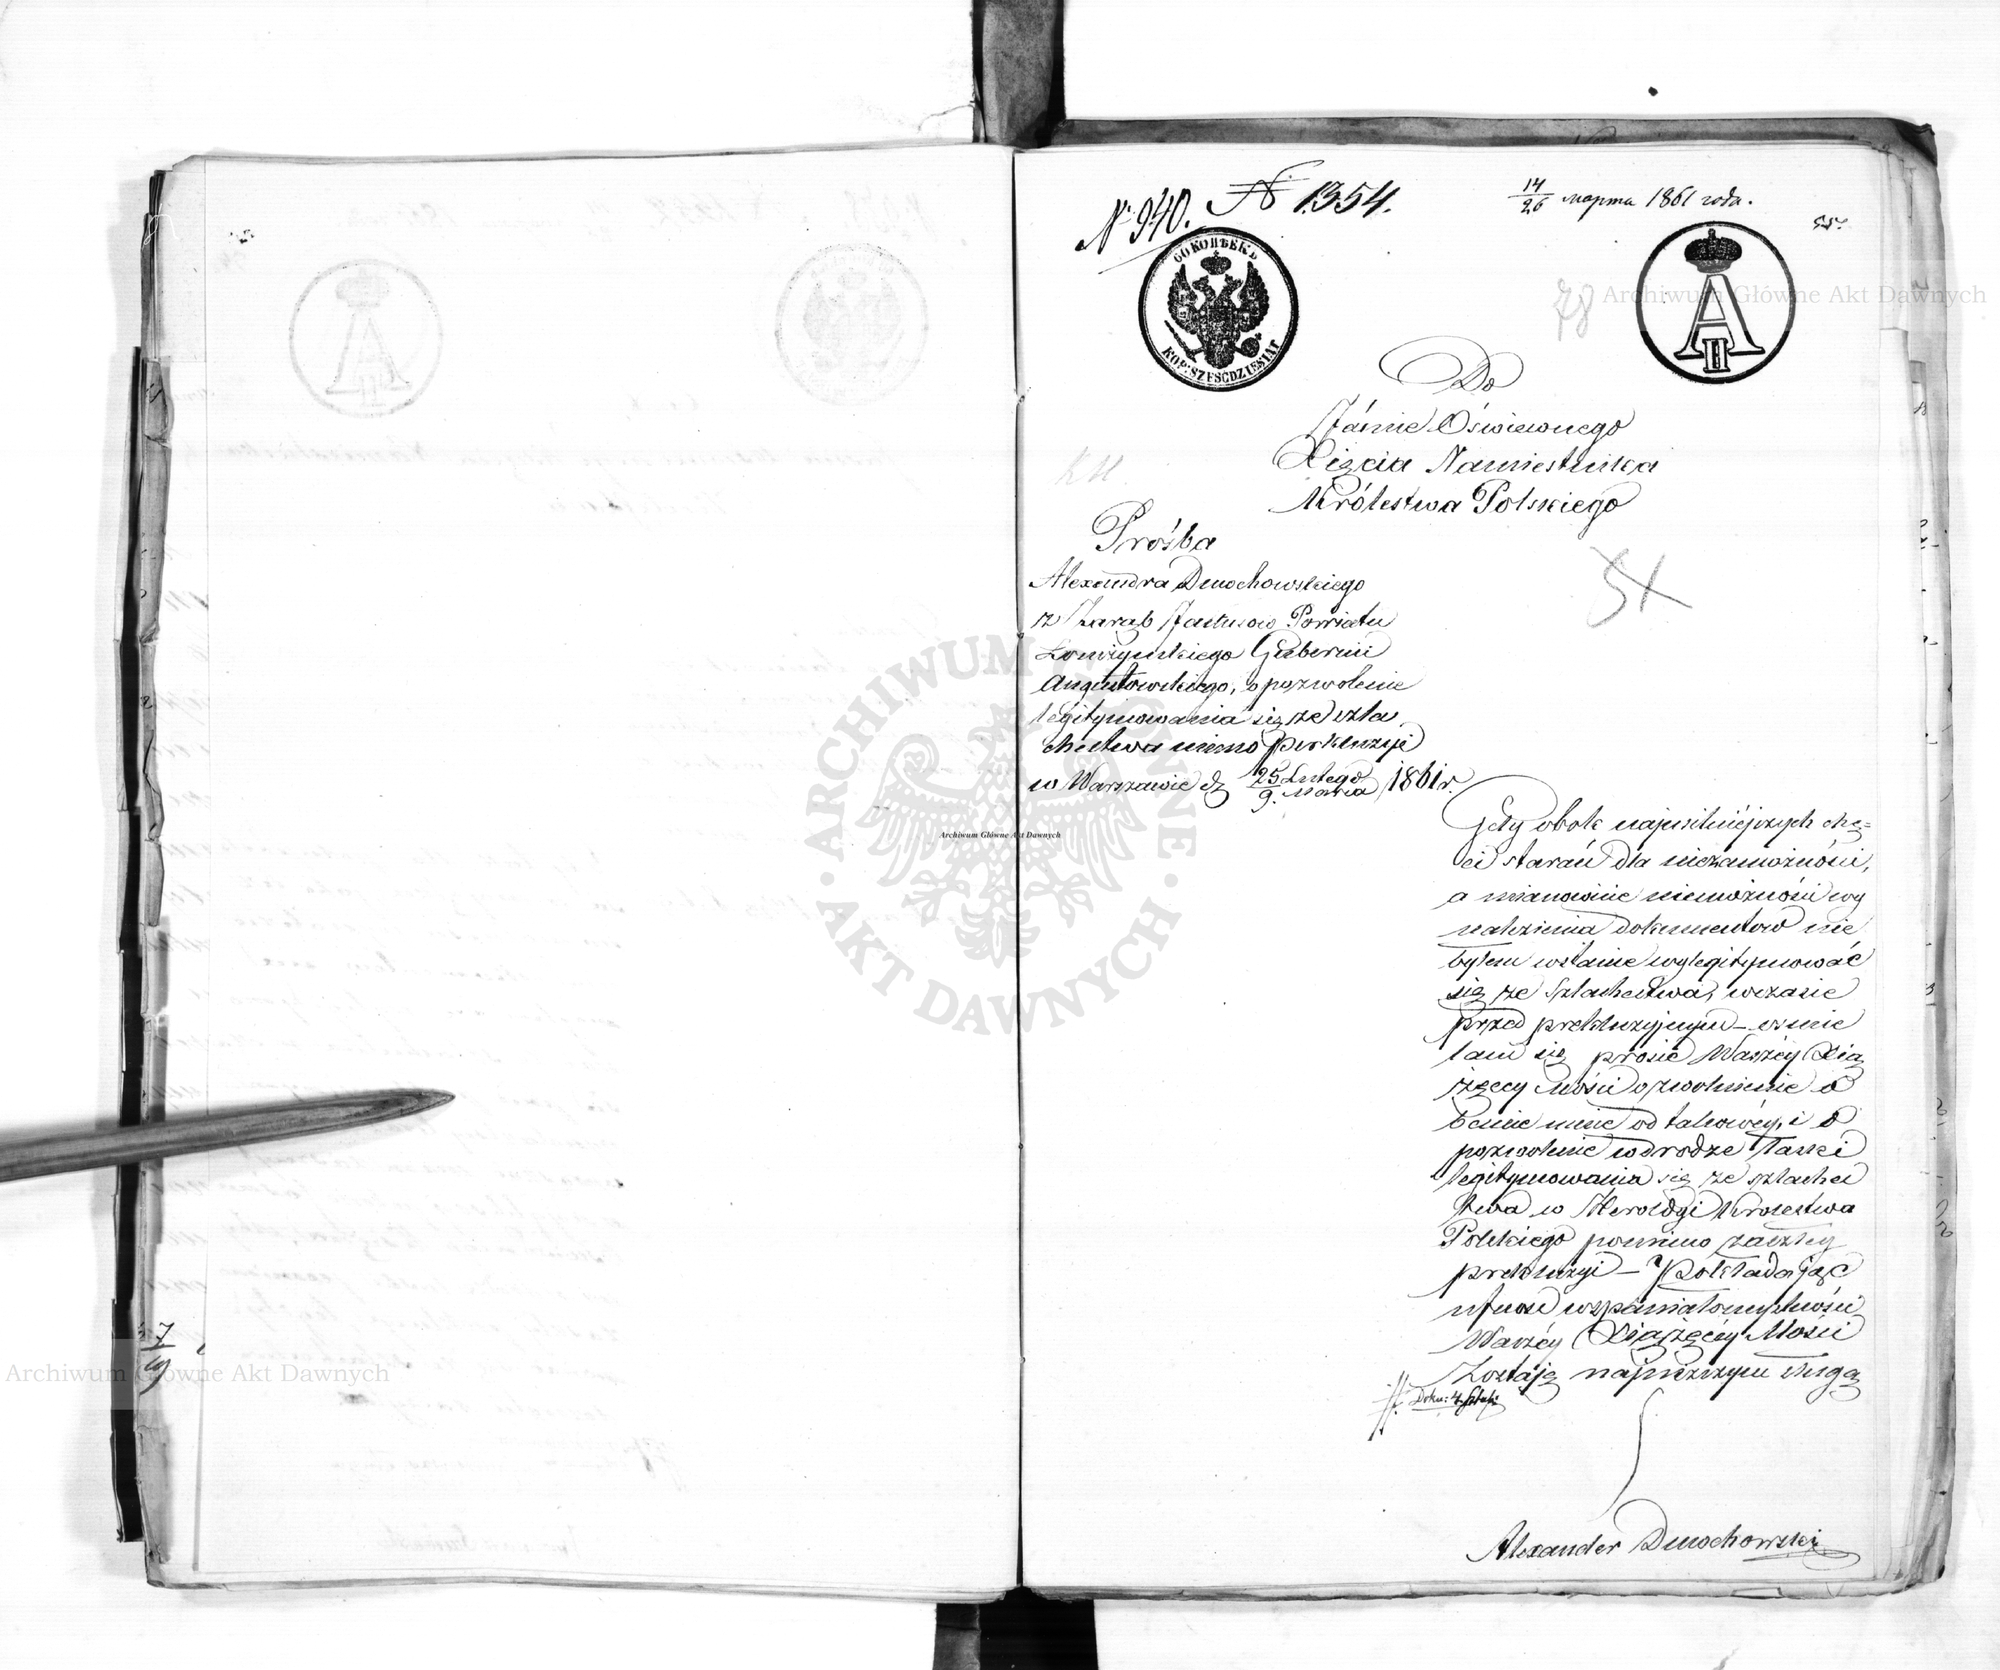 № 940. № 1354.
14/26 марта 1861 года.
55.
60 КОПѢЕКЪ
KOP: SZEŚĆDZIESIĄT
A II
78
Do
Jaśnie Oświeconego
Xięcia Namiestnika
Królestwa Polskiego
Prośba
Alexandra Dmochowskiego
z Zaręb Jartusow Powiatu
Łomżyńskiego Gubernii
Augustowskiego, o pozwolenie
legitymowania się ze szla
chectwa mimo prekluzyi
w Warszawie d. 25 Lutego / 9. Marca 1861 r.
Gdy obok najusilniéjszych chę=
ci starań dla niezamożności,
a mianowicie niemożności wy
nalezienia dokumentów nie
byłem wstanie wylegitymować
się ze Szlachectwa, wczasie
przed prekluzyjnym – ośmie
lam się prosić Waszéy Xią
żęcey Mości o zwolnienie o
becnie mnie od takowéy, i o
pozwolenie w drodze łaski
legitymowania się ze szlachec
twa w Heroldyi Królestwa
Polskiego pomimo zaszłey
prekluzyi – Pokładając
ufność wspaniałomyślności
Waszéy Xiążęcéy Mości
Zostaję najniższym sługą
Doku: 4. Sztuki
Alexander Dmochowski
Archiwum Główne Akt Dawnych
Archiwum Główne Akt Dawnych
Archiwum Główne Akt Dawnych
ARCHIWUM GŁÓWNE · AKT DAWNYCH ·